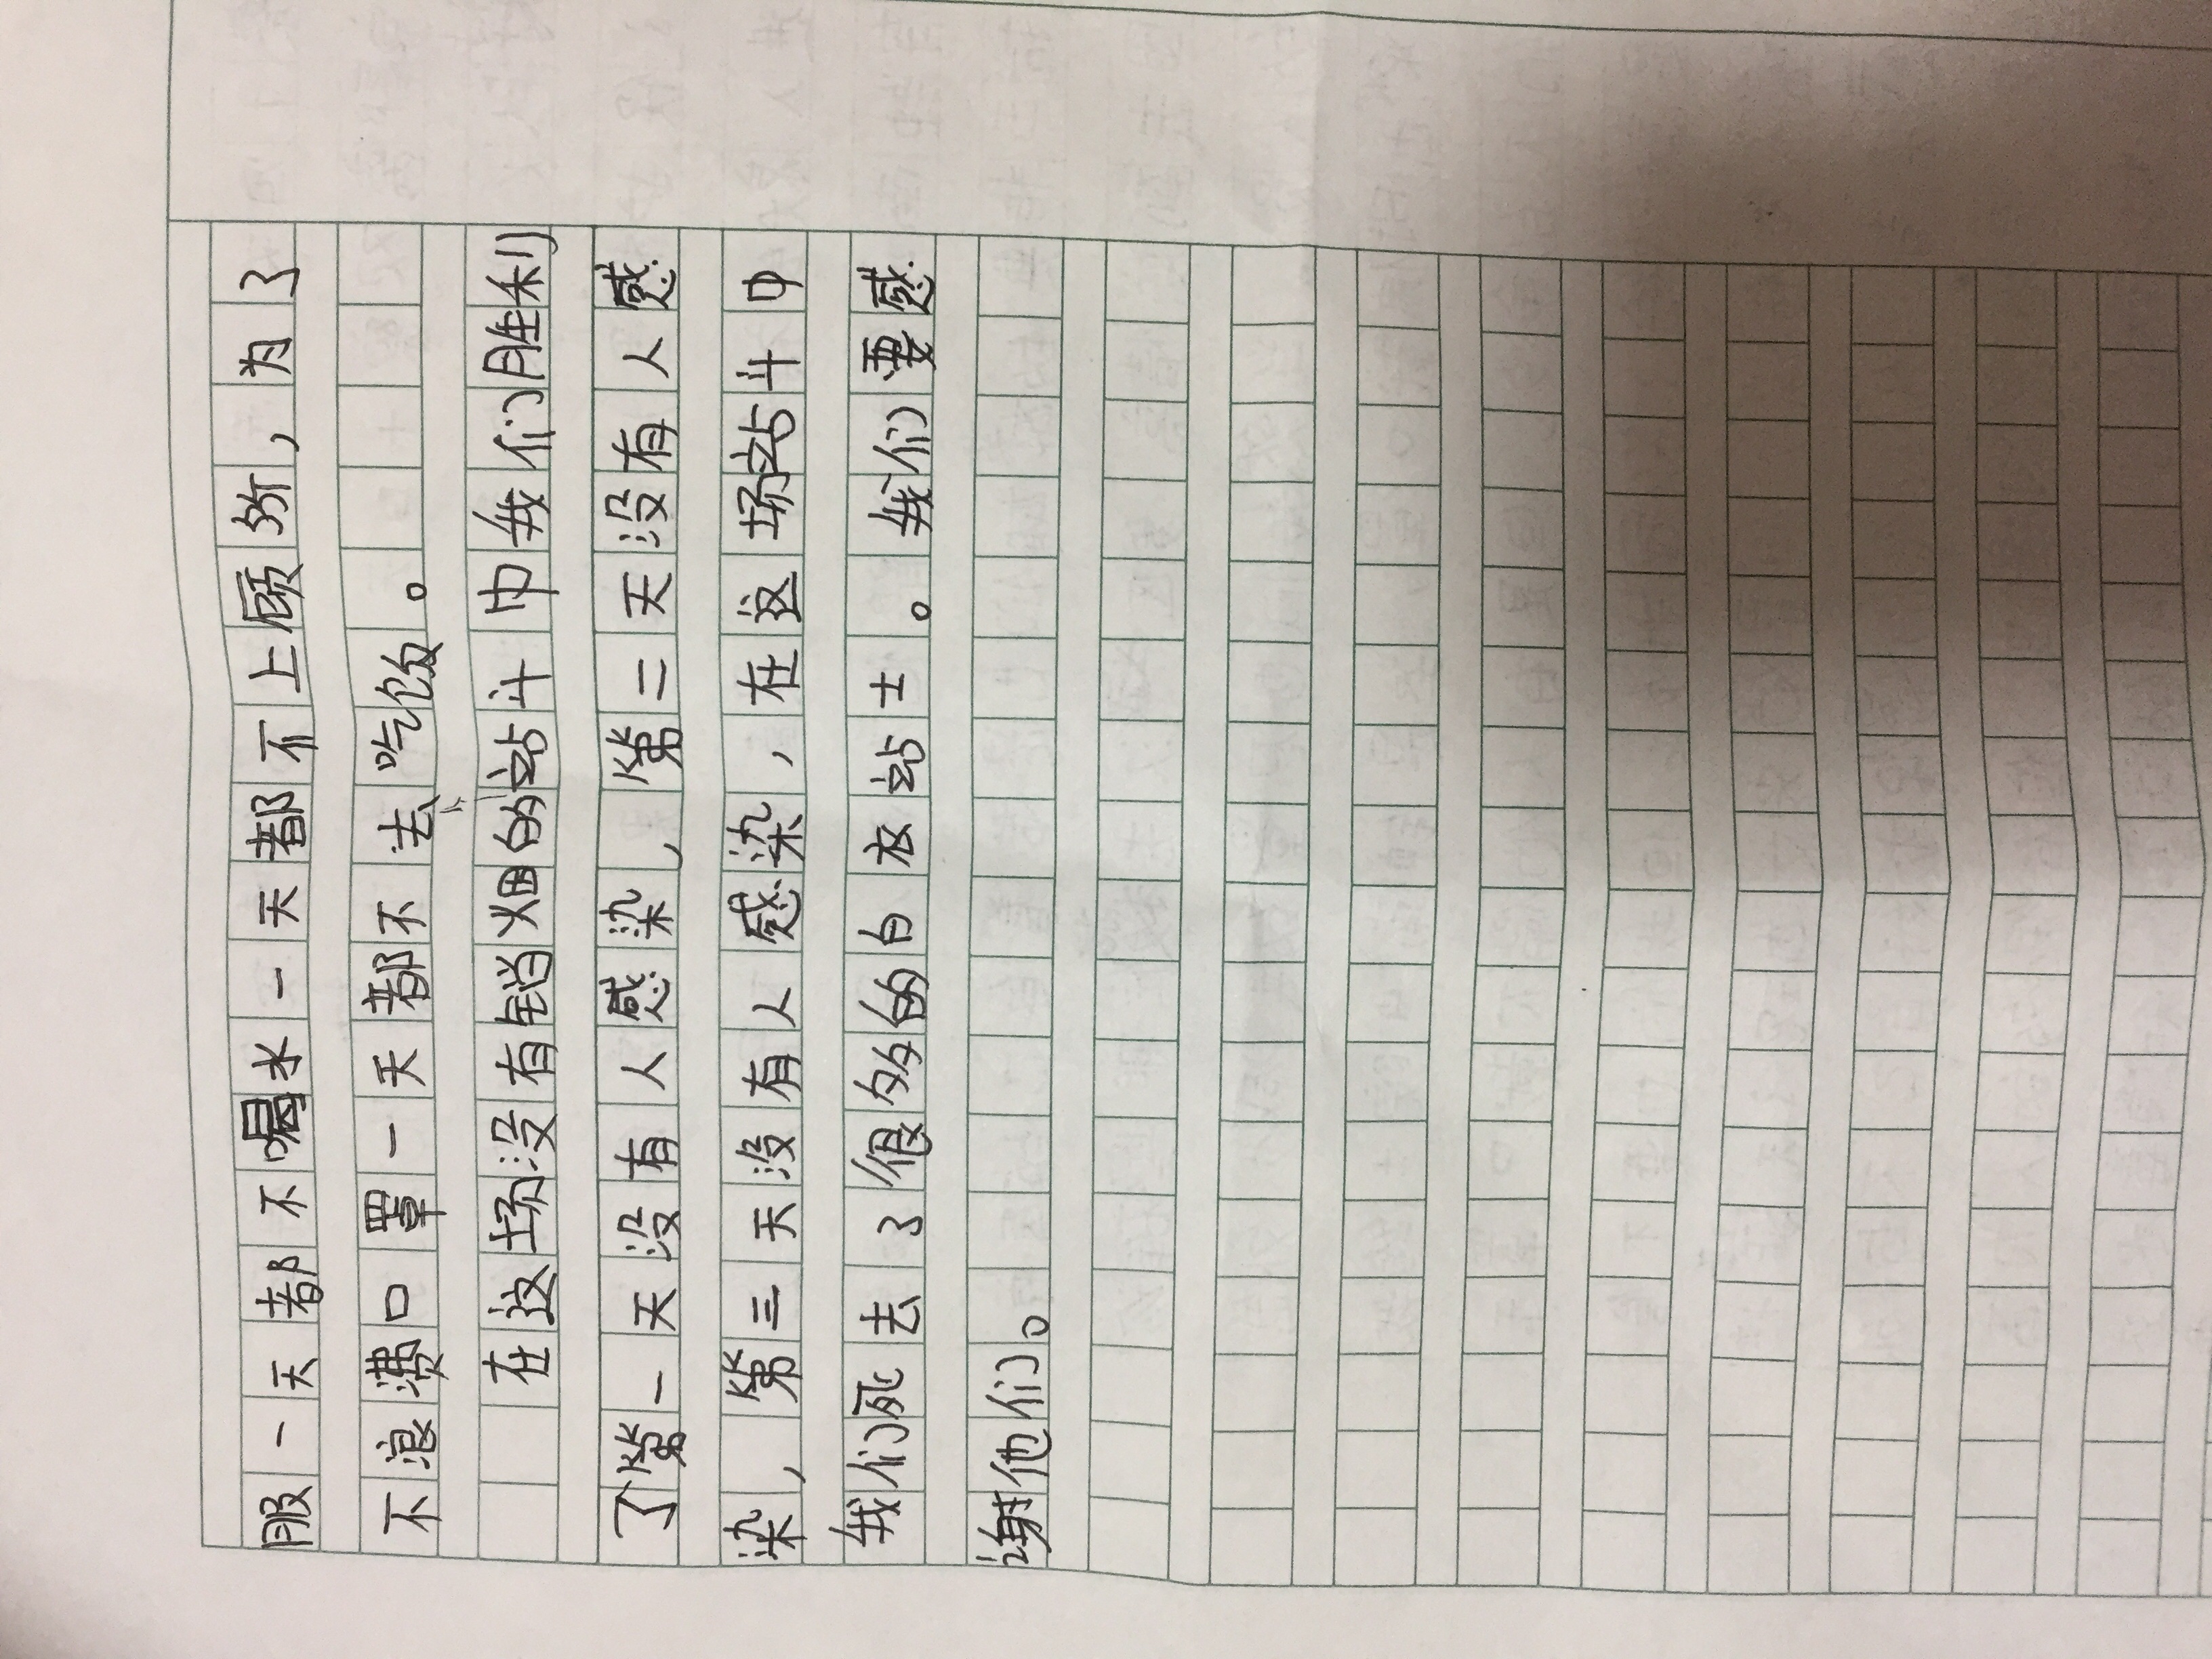 服一天都不喝水一天都不上厕所，为了
不浪费口罩一天都不去吃饭。
在这场没有销烟的站斗中我们胜利
了第一天没有人感染，第二天没有人感
染，第三天没有人感染，在这场站斗中
我们死去了很多的白衣站士。我们要感
谢他们。